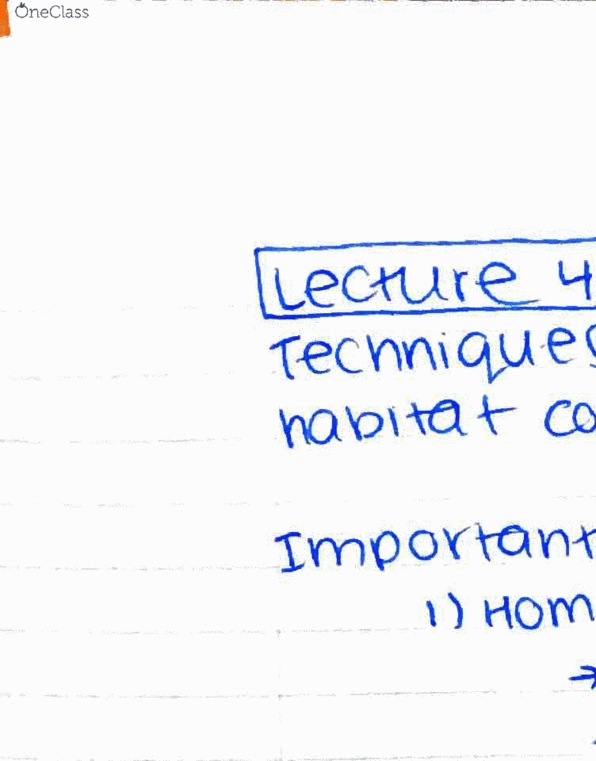 OneClass
Lecture 4
Techniques
habitat co
Important
1) Hom
→